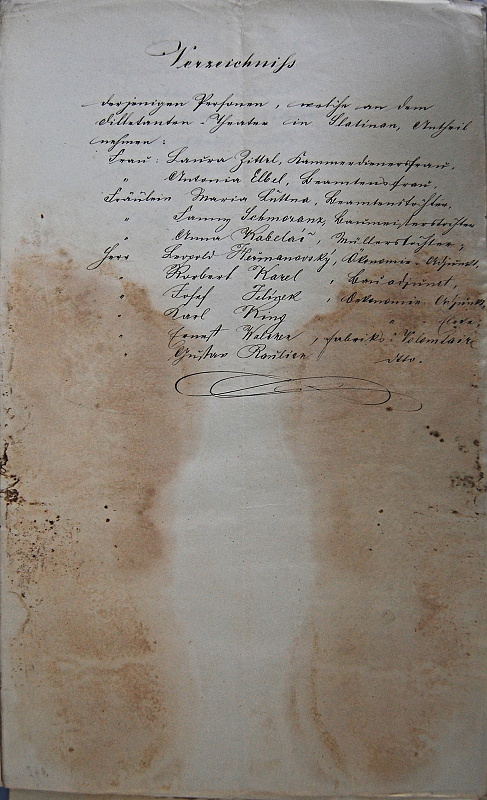 Verzeichniß
derjenigen Personen, welche an dem
Dilletanten-Theater in Slatinan, Antheil
nehmen:
Frau: Laura Zittrl, Kammerdienersfrau,
" Antonia Elbel, Beamtensfrau,
Fräulein Maria Lüttna, Beamtenstochter,
" Fanny Schmoranz, Baumeisterstochter
" Anna Kabeláč, Müllerstochter,
Herr Leopold Heřmanovský, Ökonomie-Adjunkt,
" Norbert Karel, Bauadjunct,
" Josef Jelínek, Oekonomie-Adjunkt
" Karl King " "
" Ernest Walter, Fabriks-Volontair
" Gustav Raulier dtto.